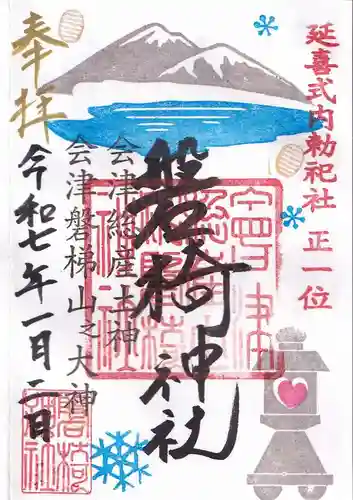 延喜式内勅祀社 正一位
奉拝
会津総産土神
会津磐梯山之大神
磐椅神社
令和七年一月二日